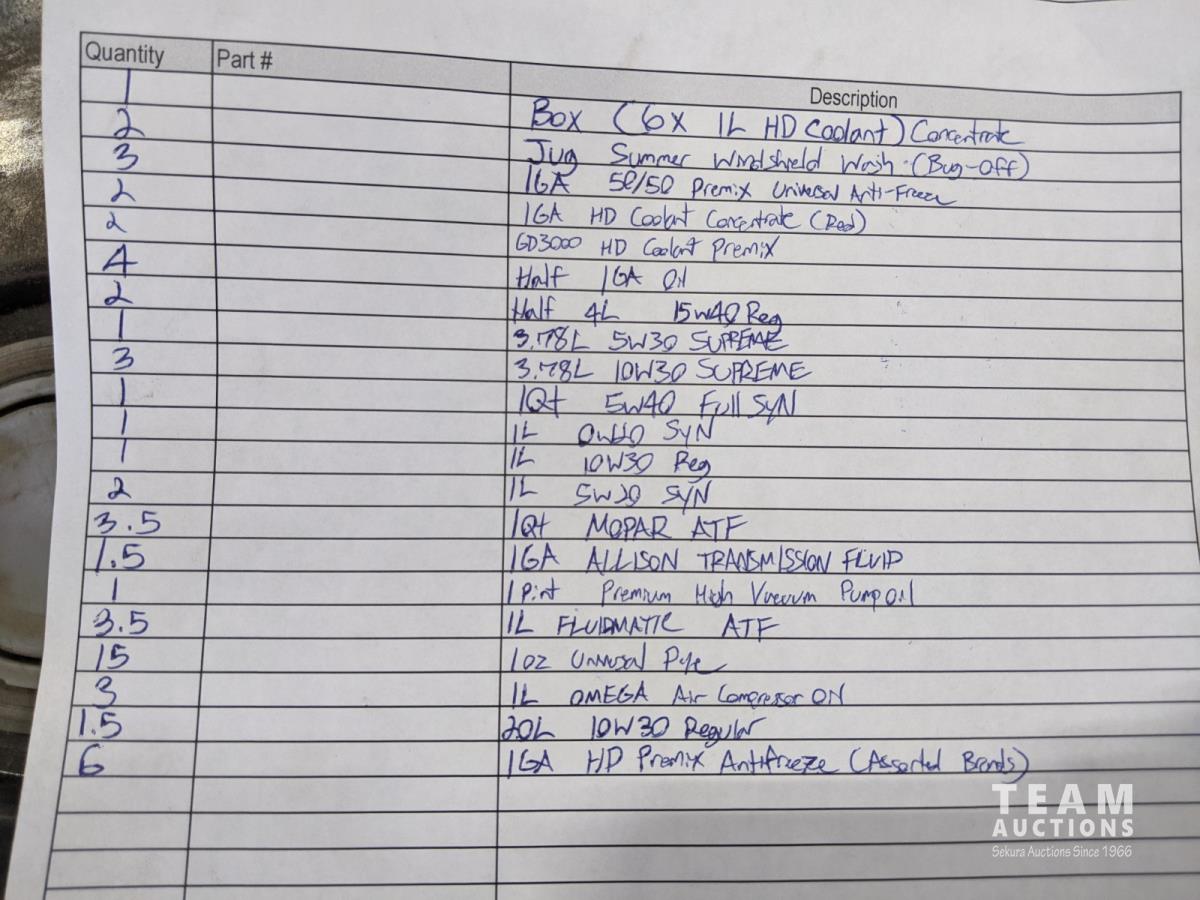 Quantity Part # Description
1 Box (6x 1L HD Coolant) Concentrate
2 Jug Summer Windshield Wash (Bug-Off)
3 1GA 50/50 Premix Universal Anti-Freeze
2 1GA HD Coolant Concentrate (Red)
2 GD3000 HD Coolant Premix
4 Half 1GA Oil
2 Half 4L 15W40 Reg
1 3.78L 5W30 SUPREME
3 3.78L 10W30 SUPREME
1 1Qt 5W40 Full SYN
1 1L 0W40 SYN
1 1L 10W30 Reg
2 1L 5W20 SYN
3.5 1Qt MOPAR ATF
1.5 1GA ALLISON TRANSMISSION FLUID
1 1 Pint Premium High Vacuum Pump Oil
3.5 1L FLUIDMATIC ATF
15 1oz Universal
3 1L OMEGA Air Compressor Oil
1.5 20L 10W30 Regular
6 1GA HD Premix Antifreeze (Assorted Brands)
TEAM
AUCTIONS
Sekura Auctions Since 1966